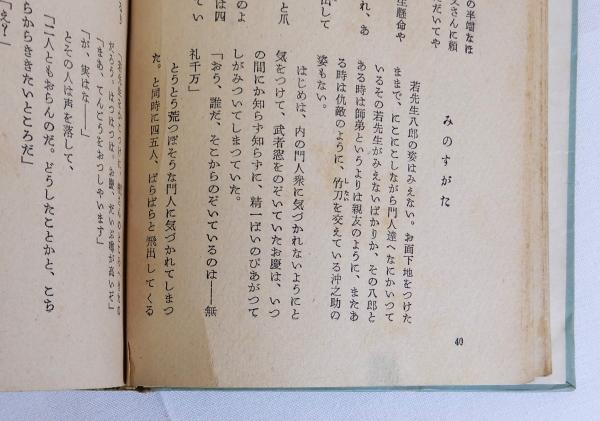 みのすがた
若先生八郎の姿はみえない。お面下地をつけた
ままで、にこにこしながら門人達へなにかいつて
いるその若先生がみえないばかりか、その八郎と
ある時は師弟というよりは親友のように、またあ
る時は仇敵のように、竹刀を交えている沖之助の
姿もない。
はじめは、内の門人衆に気づかれないようにと
気をつけて、武者窓をのぞいていたお慶は、いつ
の間にか知らず知らずに、精一ぱいのびあがつて
しがみついてしまつていた。
「おう、誰だ、そこからのぞいているのは――無
礼千万」
とうとう荒つぽそうな門人に気づかれてしまつ
た。と同時に四五人、ばらばらと飛出してくる
40
の半端なほ
父さんに頼
だいてや
生懸命や
れ、あ
出して
と爪
のよ
は四
てい
「まあ、てんごうをおつしやいます」
「が、実はな――」
とその人は声を落して、
「二人ともおらんのだ。どうしたことかと、こち
らからききたいところだ」
「え？」